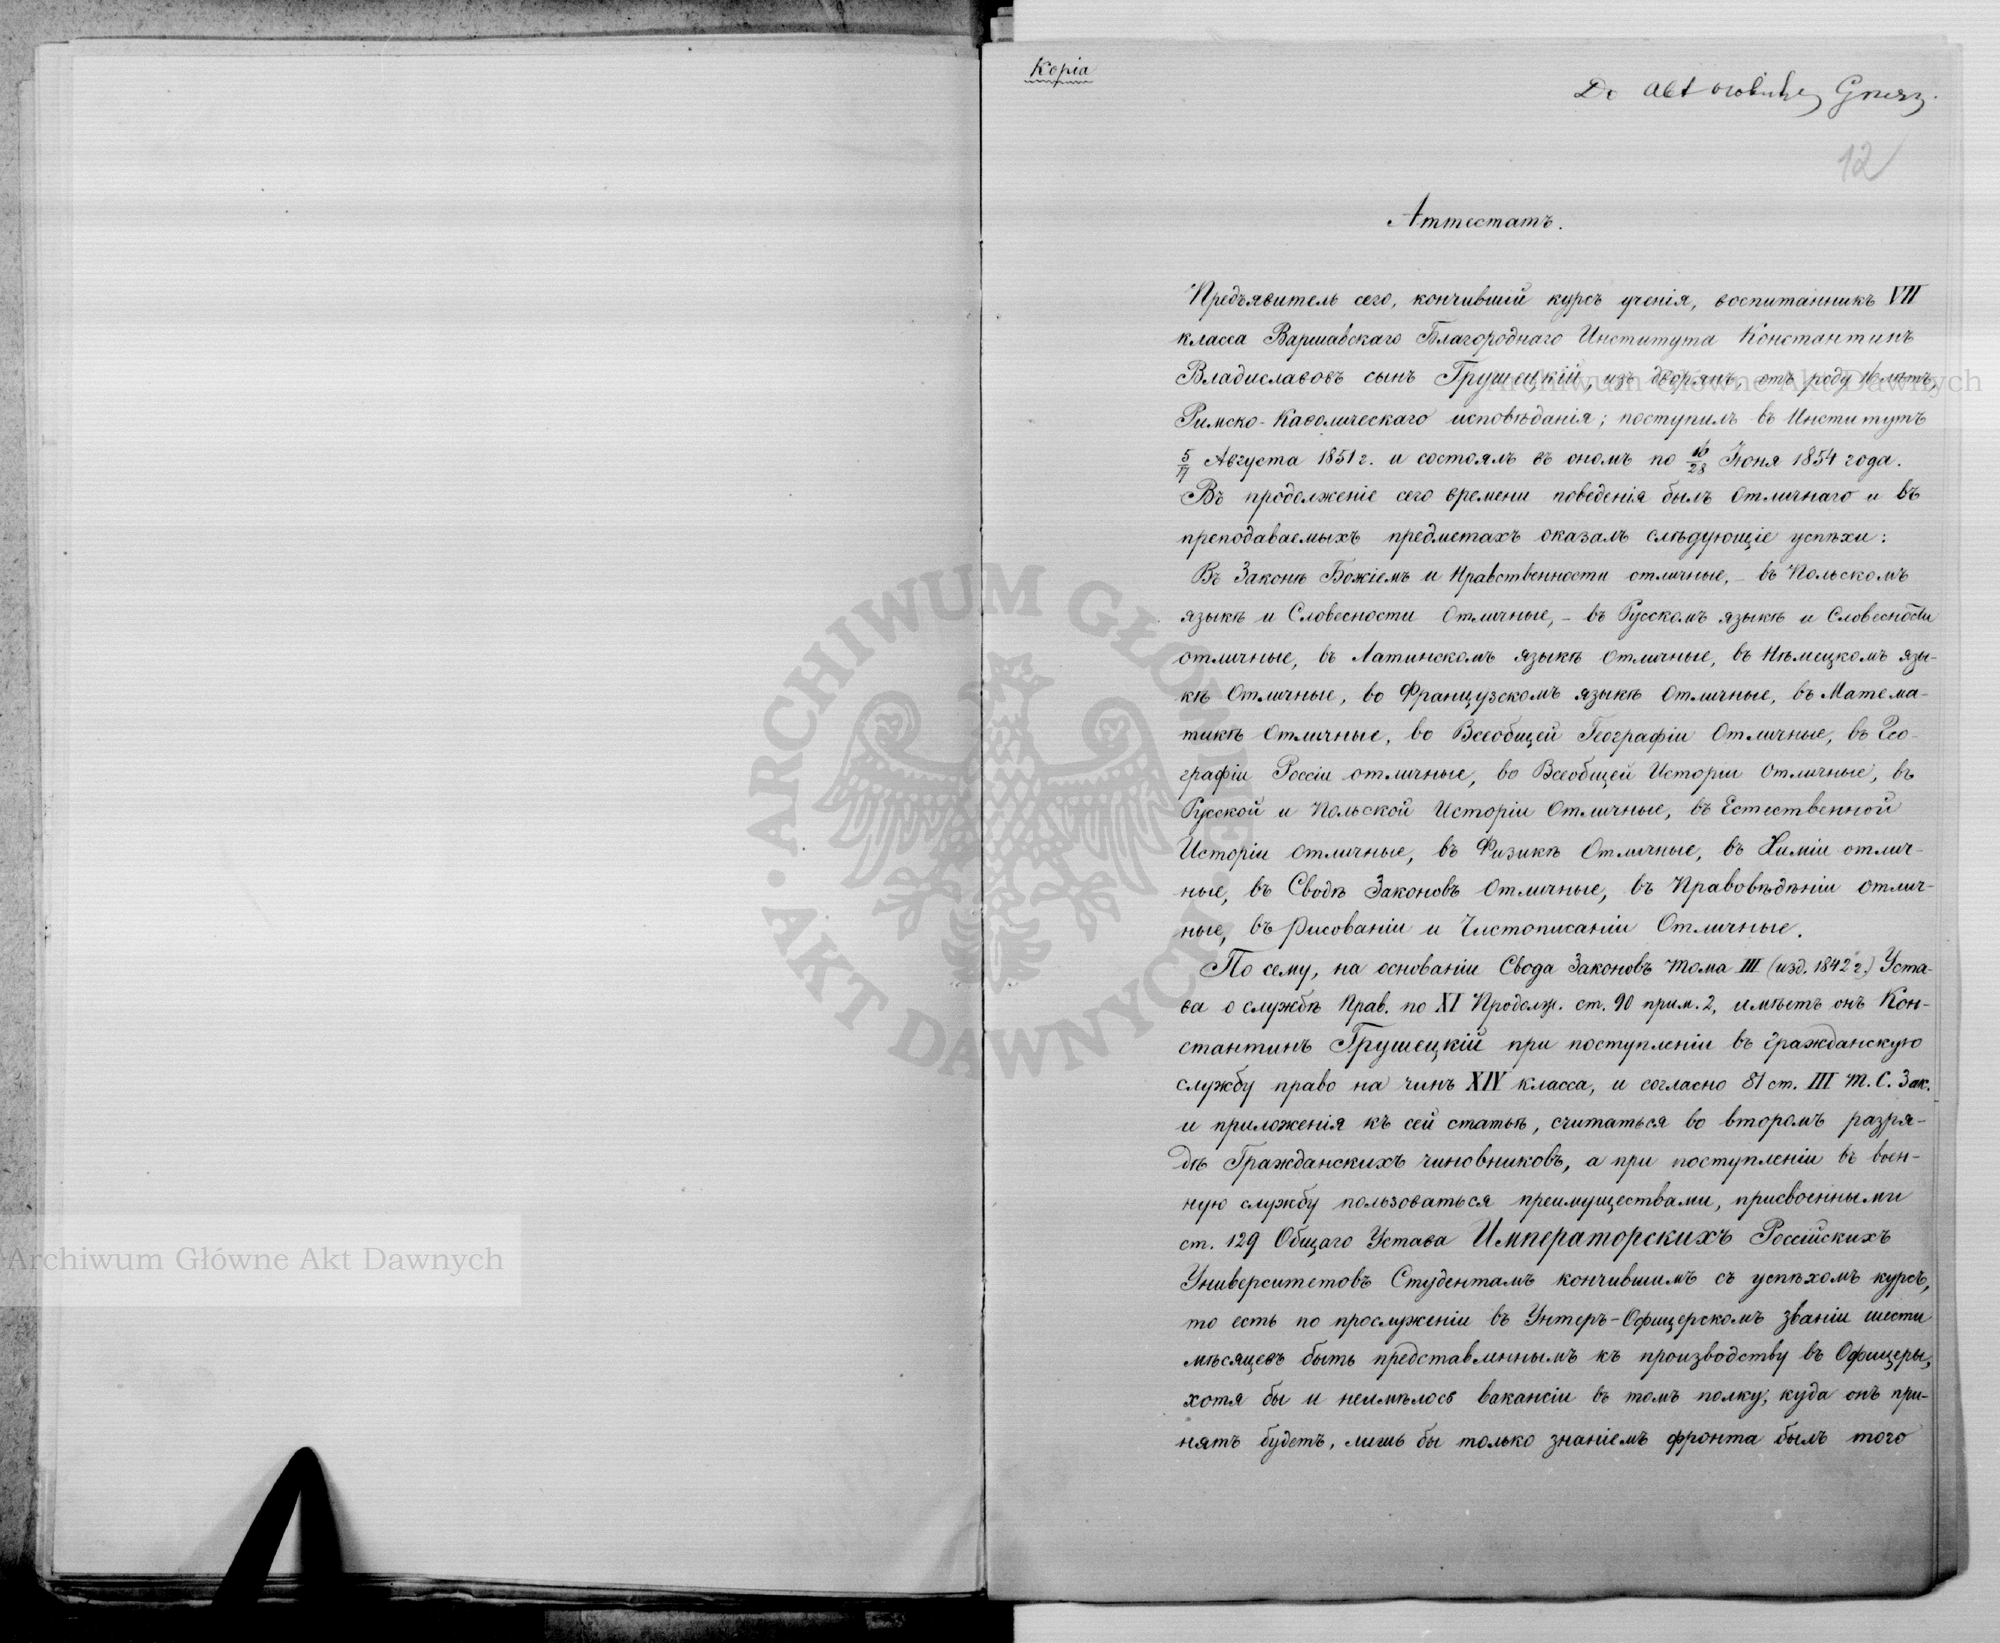 Копія
Do akt osobistych Grusz.
12
Аттестатъ.
Предъявитель сего, кончившій курсъ ученія, воспитанникъ VII
класса Варшавскаго Благороднаго Института Константинъ
Владиславовъ сынъ Грушецкій, изъ дворянъ, отъ роду 16 лѣтъ,
Римско-Каѳолическаго исповѣданія; поступилъ въ Институтъ
5/17 Августа 1851 г. и состоялъ въ ономъ по 16/28 Іюня 1854 года.
Въ продолженіе сего времени поведенія былъ отличнаго и въ
преподаваемыхъ предметахъ оказалъ слѣдующіе успѣхи:
Въ Законѣ Божіемъ и Нравственности отличные, – въ Польскомъ
языкѣ и Словесности Отличные, – въ Русскомъ языкѣ и Словесности
отличные, въ Латинскомъ языкѣ Отличные, въ Нѣмецкомъ язы-
кѣ Отличные, во Французскомъ языкѣ Отличные, въ Матема-
тикѣ Отличные, во Всеобщей Географіи Отличные, въ Гео-
графіи Россіи отличные, во Всеобщей Исторіи Отличные, въ
Русской и Польской Исторіи Отличные, въ Естественной
Исторіи отличные, въ Физикѣ Отличные, въ Химіи отлич-
ные, въ Сводѣ Законовъ Отличные, въ Правовѣдѣніи отлич-
ные, въ Рисованіи и Чистописаніи Отличные.
По сему, на основаніи Свода Законовъ Тома III (изд. 1842 г.) Уста-
ва о службѣ Прав. по XI Продолж. ст. 90 прим. 2, имѣетъ онъ Кон-
стантинъ Грушецкій при поступленіи въ гражданскую
службу право на чинъ XIV класса, и согласно 81 ст. III Т. С. Зак.
и приложенія къ сей статьѣ, считаться во второмъ разря-
дѣ Гражданскихъ чиновниковъ, а при поступленіи въ воен-
ную службу пользоваться преимуществами, присвоенными
ст. 129 Общаго Устава Императорскихъ Россійскихъ
Университетовъ Студентамъ кончившимъ съ успѣхомъ курсъ,
то есть по прослуженіи въ Унтеръ-Офицерскомъ званіи шести
мѣсяцевъ быть представленнымъ къ производству въ Офицеры,
хотя бы и неимѣлось вакансіи въ томъ полку, куда онъ при-
нятъ будетъ, лишь бы только знаніемъ фронта былъ того
Archiwum Główne Akt Dawnych
Archiwum Główne Akt Dawnych
ARCHIWUM GŁÓWNE · AKT DAWNYCH ·